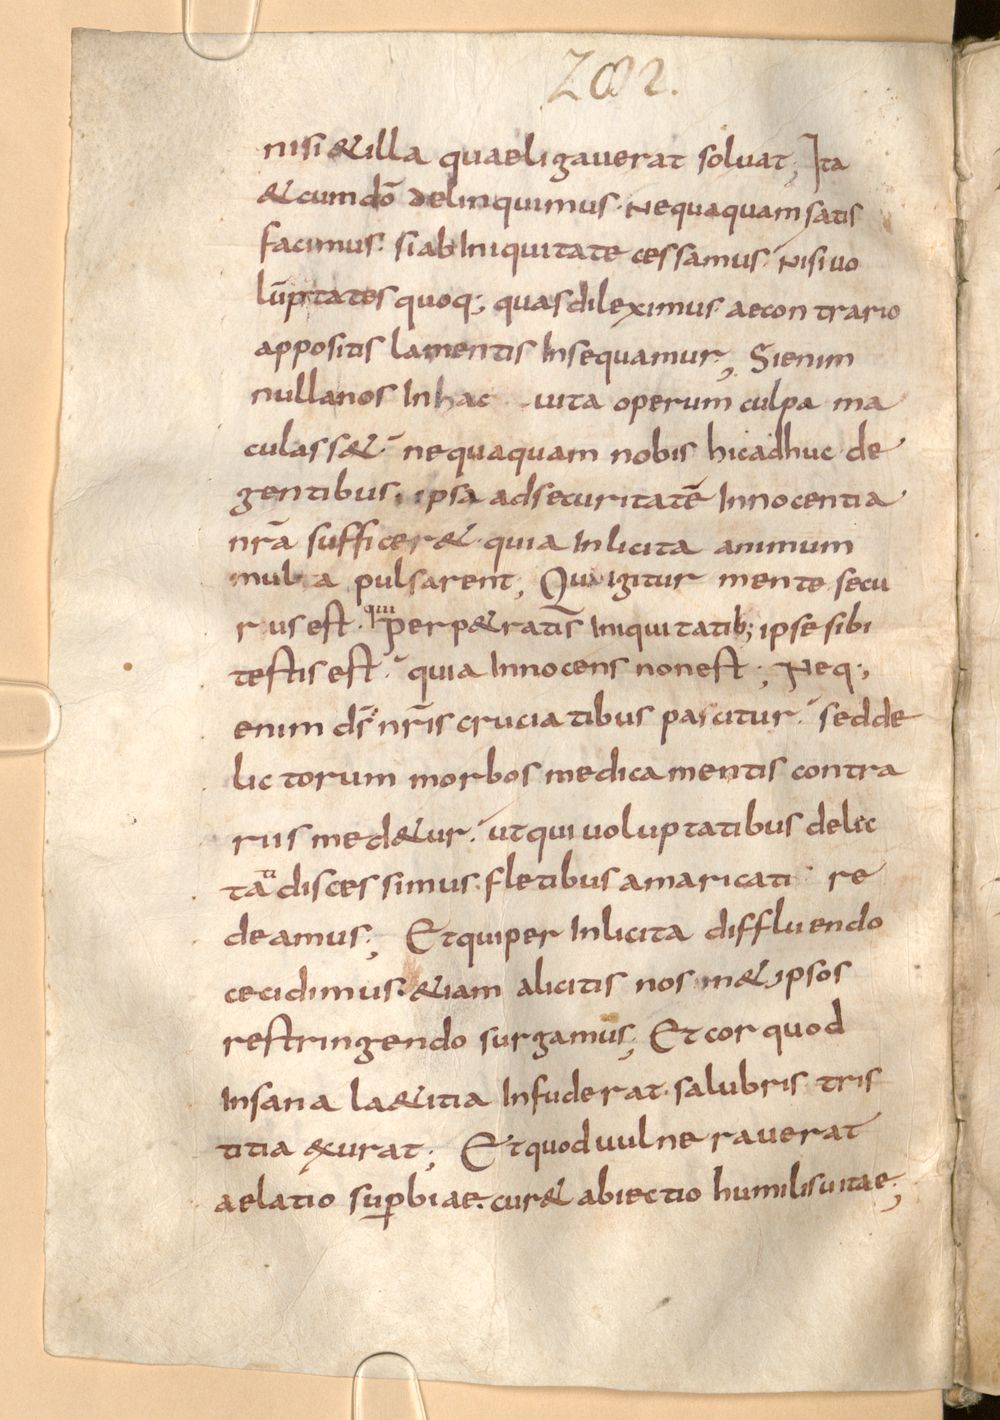 nisi & illa quae ligauerat soluat; Ita
& cum dō delinquimus. Nequaquam satis
facimus. si ab Iniquitate cessamus. Nisi uo
lūptates quoq; quas dileximus ae contrario
appositis lamentis Insequamur; Si enim
nulla nos In hac uita operum culpa ma
culass& nequaquam nobis hic adhuc de
gentibus, ipsa ad securitatē Innocentia
nr̄a sufficer& quia Inlicita animum
multa pulsarent; Qua igitur mente secu
rus est. qui perp&ratis Iniquitatib; ipse sibi
testis est. quia Innocens non est; Neq;
enim ds̄ nr̄is cruciatibus pascitur. sed de
lictorum morbos medicamentis contra
riis med&ur. ut qui uoluptatibus delec
ta discessimus. fletibus amaricati re
deamus; Et qui per Inlicita diffluendo
cecidimus. &iam a licitis nos m& ipsos
restringendo surgamus; Et cor quod
Insana la&itia Infuderat. salubris tris
titia exurat; Et quod uulnerauerat
aelatio sup̱biae. cur& abiectio humilis uitae;